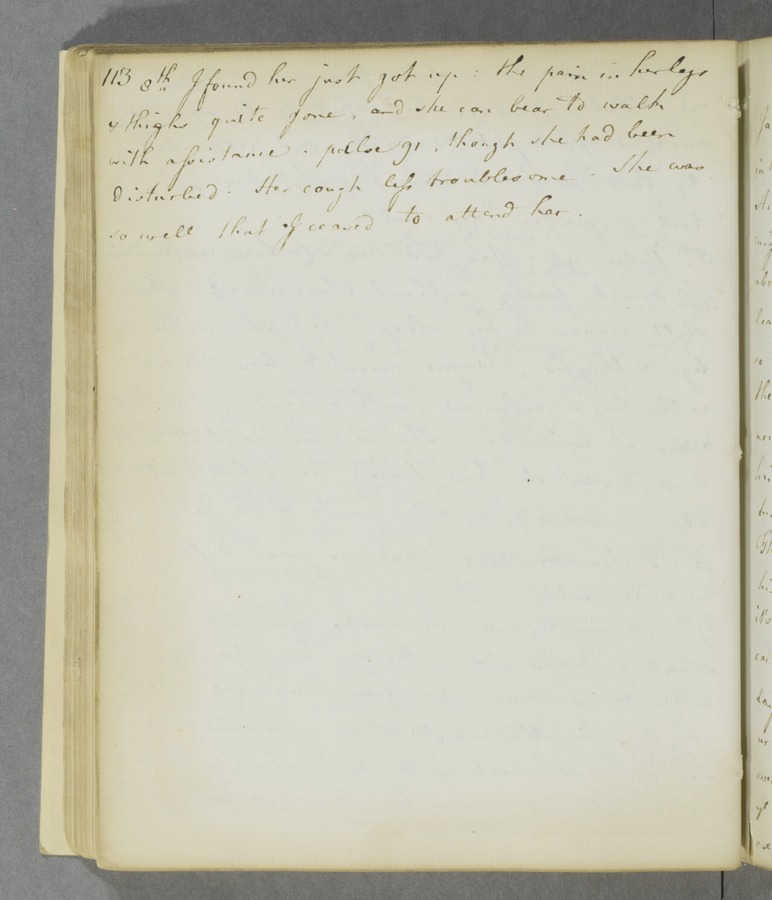 113 8th I found her just got up : the pain in her legs
& thighs quite gone, and she can bear to walk
with assistance . pulse 91, though she had been
disturbed . Her cough less troublesome . She was
so well that I ceased to attend her .